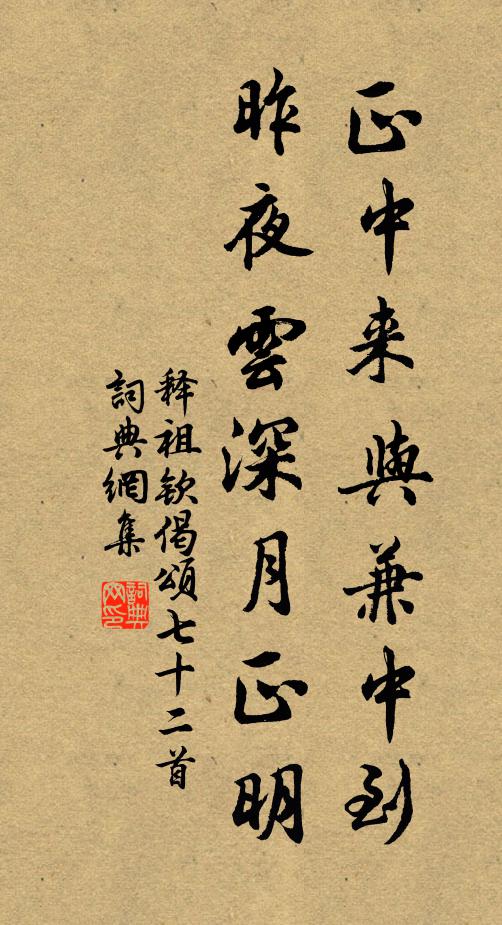 正中来與兼中到
昨夜雲深月正明
释祖欽偈頌七十二首
詞典網集
詞典網印